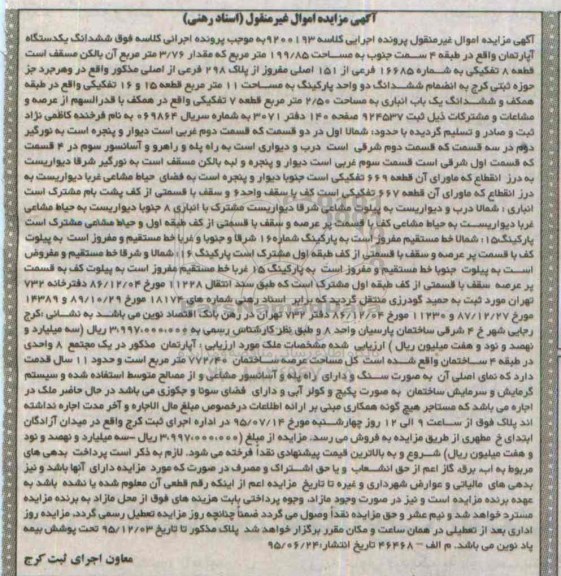 آگهی مزایده اموال غیرمنقول (اسناد رهنی)
آگهی مزایده اموال غیرمنقول پرونده اجرایی کلاسه ۹۲۰۰۱۹۳به موجب پرونده اجرائی کلاسه فوق ششدانگ یکدستگاه
آپارتمان واقع در طبقه ۴ سمت جنوب به مساحت ۱۹۹/۸۵ متر مربع که مقدار ۳/۷۶ متر مربع آن بالکن مسقف است
قطعه ۸ تفکیکی به شماره ۱۶۶۸۵ فرعی از ۱۵۱ اصلی مفروز از پلاک ۲۹۸ فرعی از اصلی مذکور واقع در وهرجرد جز
حوزه ثبتی کرج به انضمام ششدانگ دو واحد پارکینگ به مساحت ۱۱ متر مربع قطعه ۱۵ و ۱۶ تفکیکی واقع در طبقه
همکف و ششدانگ یک باب انباری به مساحت ۲/۵۰ متر مربع قطعه ۷ تفکیکی واقع در همکف با قدرالسهم از عرصه و
مشاعات و مشترکات ذیل ثبت ۹۲۴۵۳۷ صفحه ۱۴۰ دفتر ۳۰۷۱ به شماره سریال ۰۶۹۸۶۴ به نام فرخنده کاظمی نژاد
ثبت و صادر و تسلیم گردیده با حدود: شمالا اول در دو قسمت که قسمت دوم غربی است دیوار و پنجره است به نورگیر
دوم در سه قسمت که قسمت دوم شرقی است درب و دیواری است به راه پله و راهرو و آسانسور سوم در ۴ قسمت
که قسمت اول شرقی است قسمت سوم غربی است دیوار و پنجره و لبه بالکن مسقف است به نورگیر شرقا دیواریست
به درز انقطاع که ماورای آن قطعه ۶۶۹ تفکیکی است جنوبا دیوار و پنجره است به فضای حیاط مشاعی غربا دیواریست به
درز انقطاع که ماورای آن قطعه ۶۶۷ تفکیکی است کف با سقف واحد۶ و سقف با قسمتی از کف پشت بام مشترک است
انباری : شمالا درب و دیواریست به پیلوت مشاعی شرقا دیواریست مشترک با انباری ۸ جنوبا دیواریست به حیاط مشاعی
غربا دیواریست به حیاط مشاعی کف با قسمت پر عرصه و سقف با قسمتی از کف طبقه اول و حیاط مشاعی مشترک است
پارکینگ۱۵: شمالا خط مستقیم مفروز است به پارکینگ شماره۱۶ شرقا و جنوبا و غربا خط مستقیم و مفروز است به پیلوت
کف با قسمت پر عرصه و سقف با قسمتی از کف طبقه اول مشترک است پارکینگ ۱۶: شمالا و شرقا خط مستقیم و مفروض
است به پیلوت جنوبا خط مستقیم و مفروز است به پارکینگ ۱۵ غربا خط مستقیم مفروز است به پیلوت کف به قسمت
پر عرصه سقف با قسمتی از کف طبقه اول مشترک است که طبق سند انتقال ۱۱۲۲۸ مورخ ۸۶/۱۲/۰۴ دفترخانه ۷۳۲
تهران مورد ثبت به حمید گودرزی منتقل گردید که برابر اسناد رهنی شماره های ۱۸۱۷۴ مورخ ۸۹/۱۰/۲۹ و ۱۴۳۸۹
مورخ ۸۷/۱۲/۲۷ و ۱۱۲۳۰ مورخ ۸۶/۱۲/۰۴ دفتر ۷۳۲ تهران در رهن بانک اقتصاد نوین می باشد به نشانی :کرج
رجایی شهر خ ۴ شرقی ساختمان پارسیان واحد ۸ و طبق نظر کارشناس رسمی به ۳،۹۹۷،۰۰۰،۰۰۰ ریال (سه میلیارد و
نهصد و نود و هفت میلیون ریال ) ارزیابی شده مشخصات ملک مورد ارزیابی ، آپارتمان مذکور در یک مجتمع ۸ واحدی
در طبقه ۴ ساختمان واقع شده است کل مساحت عرصه ساختمان ۷۷۲/۴۰ متر مربع است و حدود ۱۱ سال قدمت
دارد که نمای اصلی آن به صورت سنگ و دارای راه پله و آسانسور مشاعی و از مصالح متوسط استفاده شده و سیستم
گرمایش و سرمایش ساختمان به صورت پکیج و کولر آبی و دارای فضای سونا و جکوزی می باشد در حال حاضر ملک در
اجاره می باشد که مستاجر هیچ گونه همکاری مبنی بر ارائه اطلاعات درخصوص مبلغ مال الاجاره و آخر مدت اجاره نداشته
اند پلاک فوق از ساعت ۹ الی ۱۲ روز چهارشنبه مورخ ۹۵/۰۷/۱۴ در اداره اجرای ثبت کرج واقع در میدان آزادگان
ابتدای خ مطهری از طریق مزایده به فروش می رسد. مزایده از مبلغ (۳،۹۹۷،۰۰۰،۰۰۰ ریال -سه میلیارد و نهصد و نود
و هفت میلیون ریال) شروع و به بالاترین قیمت پیشنهادی نقداً فرخته می شود. لازم به ذکر است پرداخت بدهی های
مربوط به اب، برق، گاز اعم از حق انشعاب و یا حق اشتراک و مصرف در صورت که مورد مزایده دارای آنها باشد و نیز
بدهی های مالیاتی و عوارض شهرداری و غیره تا تاریخ مزایده اعم از اینکه رقم قطعی آن معلوم شده یا نشده باشد به
عهده برنده مزایده است و نیز در صورت وجود مازاد، وجوه پرداختی بابت هزینه های فوق از محل مازاد به برنده مزایده
مسترد خواهد شد و نیم عشر و حق مزایده نقداً وصول می گردد ضمناً چنانچه روز مزایده تعطیل رسمی گردد، مزایده روز
اداری بعد از تعطیلی در همان ساعت و مکان مقرر برگزار خواهد شد پلاک مذکور تا تاریخ ۹۵/۱۲/۰۳ تحت پوشش بیمه
یاد نوین می باشد. م الف – ۴۶۴۶۸ تاریخ انتشار:۹۵/۰۶/۲۴
معاون اجرای ثبت کرج